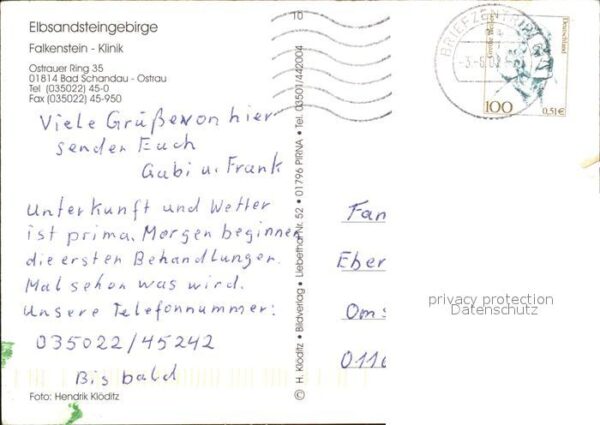 Elbsandsteingebirge
Falkenstein - Klinik
Ostrauer Ring 35
01814 Bad Schandau - Ostrau
Tel (035022) 45-0
Fax (035022) 45-950
Viele Grüße von hier
senden Euch
Gabi u. Frank
Unterkunft und Wetter
ist prima. Morgen beginnen
die ersten Behandlungen.
Mal sehen was wird.
Unsere Telefonnummer:
035022/45242
Bis bald
Foto: Hendrik Klöditz
10
© H. Klöditz • Bildverlag • Liebethal Nr. 52 • 01796 PIRNA • Tel. 03501/442004
BRIEFZENTRUM
Deutschland
100
0,51€
Fan
Eber
Oms
0116
privacy protection
Datenschutz